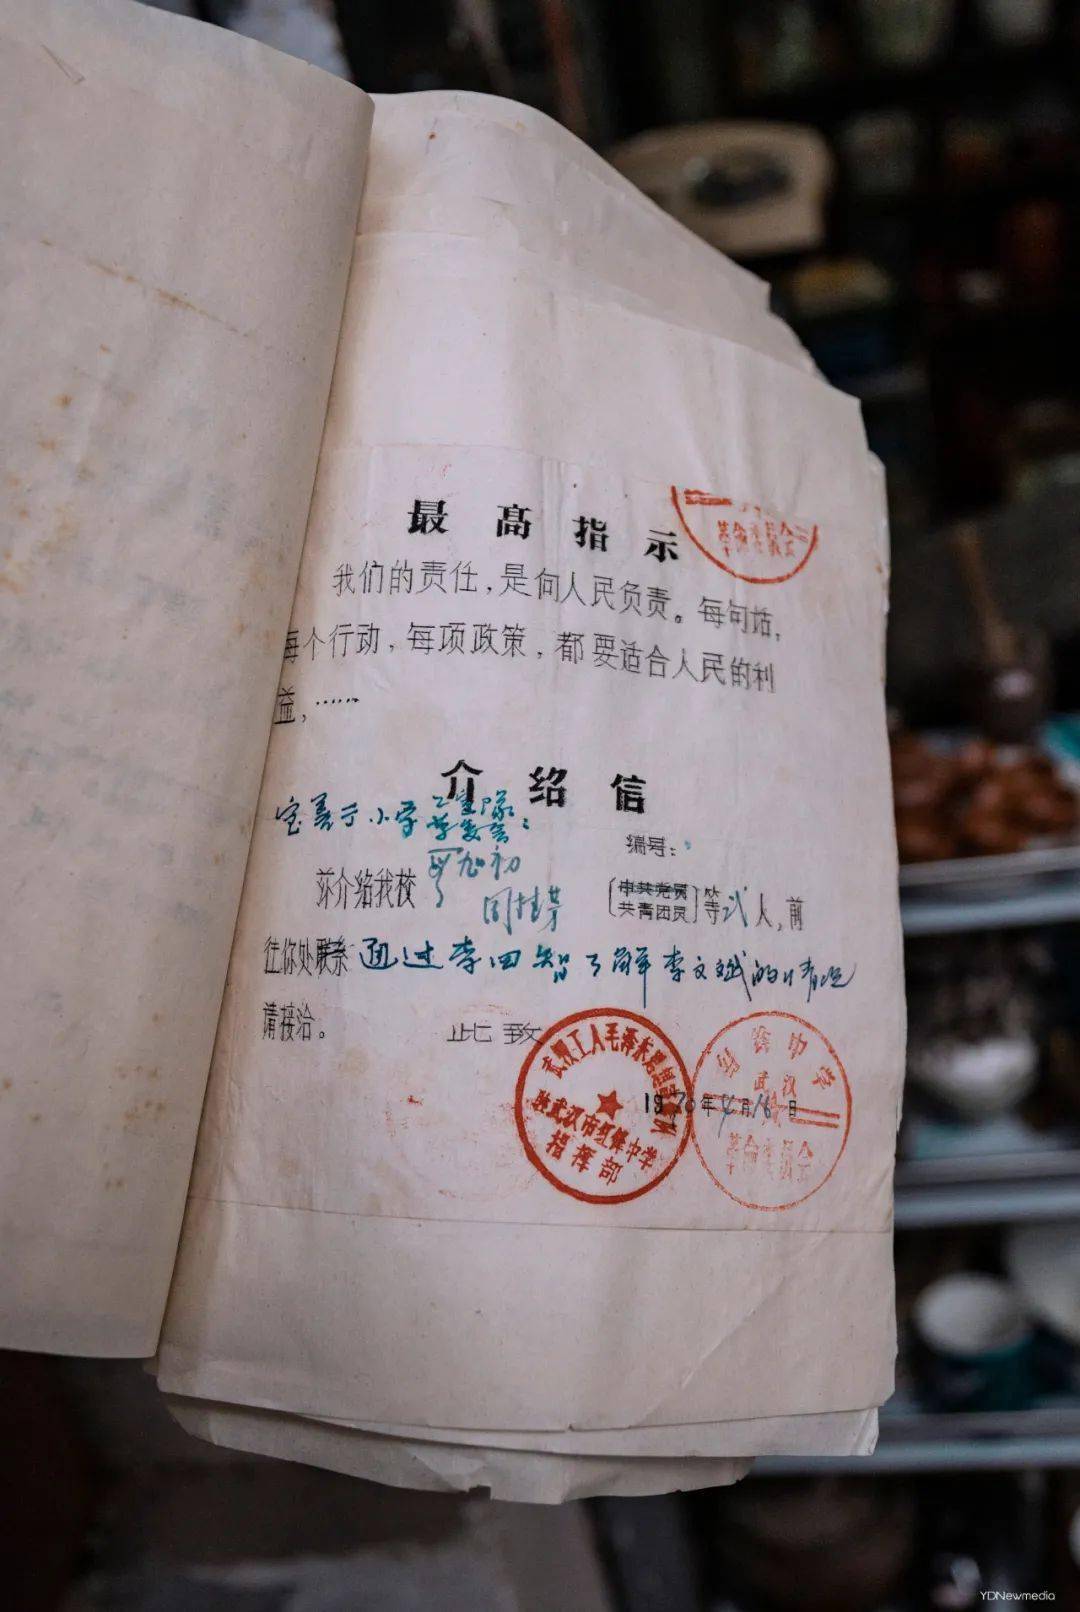 最高指示
革命委员会
我们的责任，是向人民负责。每句话，
每个行动，每项政策，都要适合人民的利
益，……
介绍信
小学
编号：
兹介绍我校
周桂芳
中共党员
共青团员
等弍人，前
往你处联系 通过李四智了解李文斌的情况
请接洽。
此致
武汉工人毛泽东思想宣传队
驻武汉市红锋中学
指挥部
1970年4月16日
中学
武汉
革命委员会
YDNewmedia